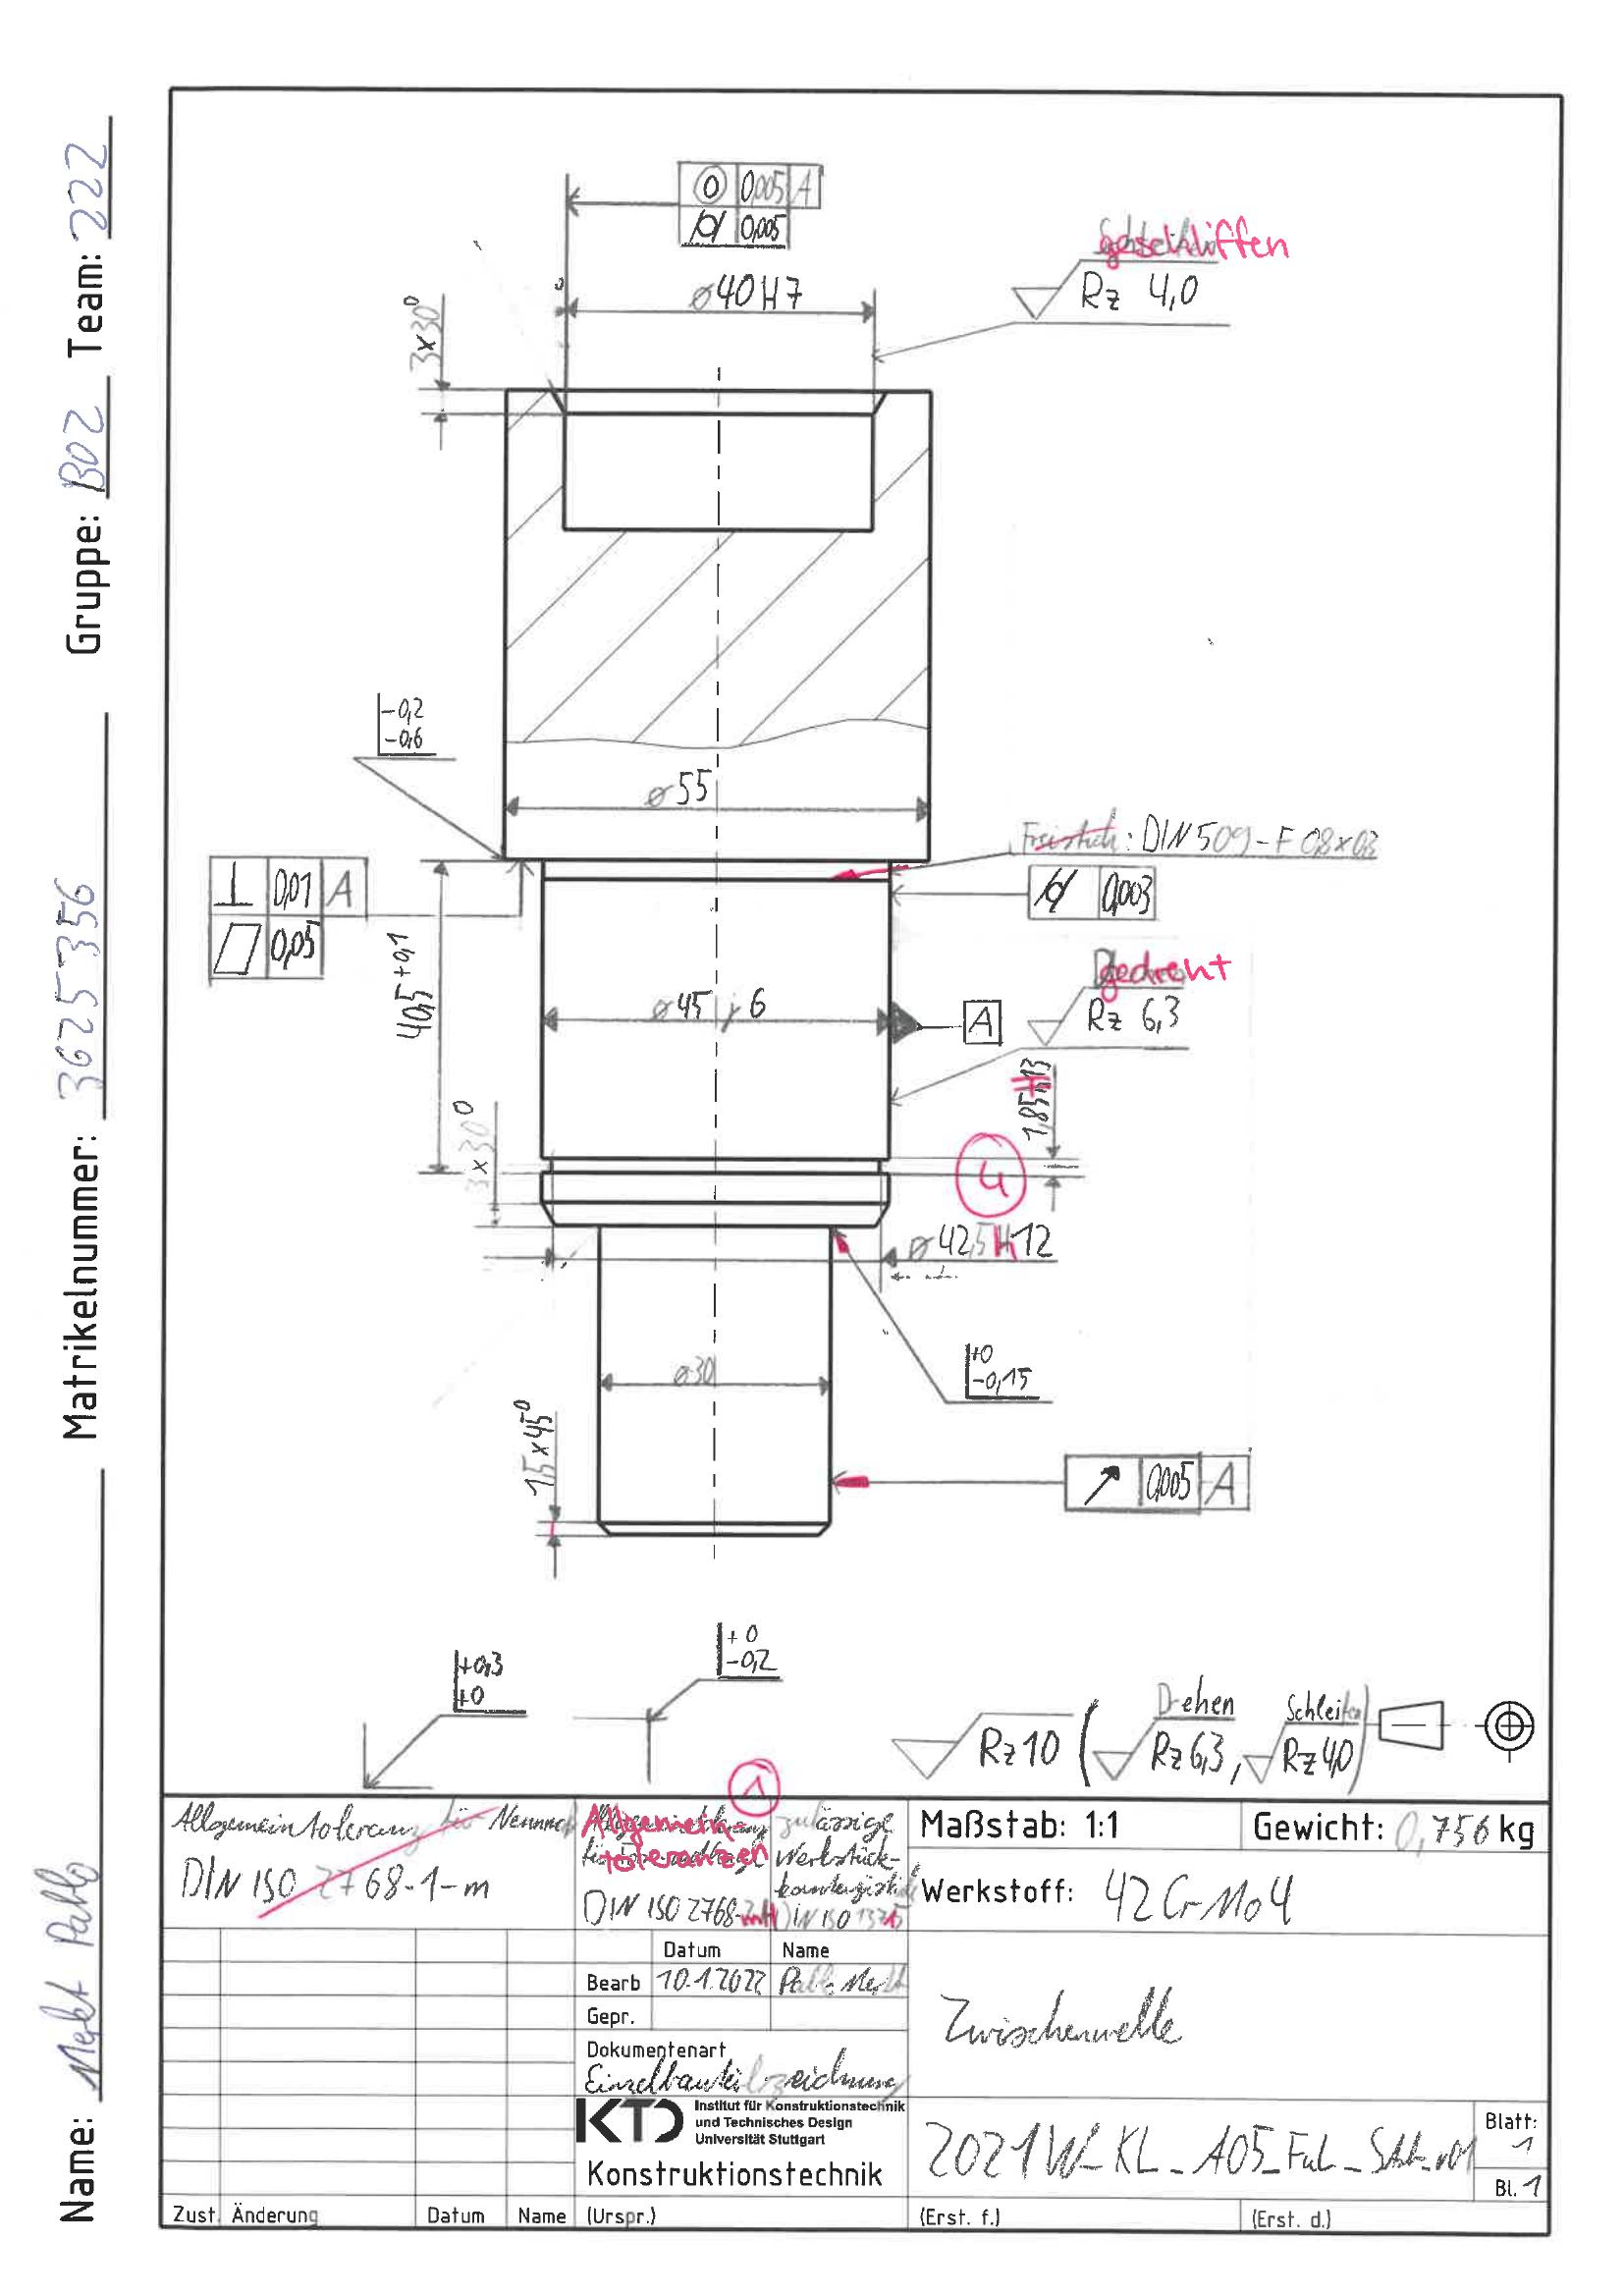 Name: Mekt Pablo Matrikelnummer: 3625356 Gruppe: B02 Team: 222
◎ 0,005 A
⌭ 0,005
geschliffen
Rz 4,0
⌀40H7
3x30°
-0,2
-0,6
⌀55
Freistich: DIN 509-F 0,8x0,3
⊥ 0,01 A
⏥ 0,05
⌭ 0,003
gedreht
Rz 6,3
40,5+0,1
⌀45 j6
A
1,85 H13
3x30°
4
⌀42,5 h12
⌀30
+0
-0,15
1,5x45°
↗ 0,005 A
+0,3
+0
+0
-0,2
Rz10 ( Drehen Rz6,3, Schleifen Rz4,0)
1
Allgemeintoleranz für
DIN ISO 2768-1-m
Allgemein-
toleranzen
DIN ISO 2768-mH
zulässige
Werkstück-
DIN ISO 13715
Maßstab: 1:1
Gewicht: 0,756 kg
Werkstoff: 42CrMo4
Datum Name
Bearb 10.1.2022 Pablo Mekt
Gepr.
Dokumentenart
Einzelbauteilzeichnung
Zwischenwelle
KTD
Institut für Konstruktionstechnik
und Technisches Design
Universität Stuttgart
Konstruktionstechnik
Blatt:
1
Bl. 1
Zust. Änderung Datum Name (Urspr.) (Erst. f.) (Erst. d.)